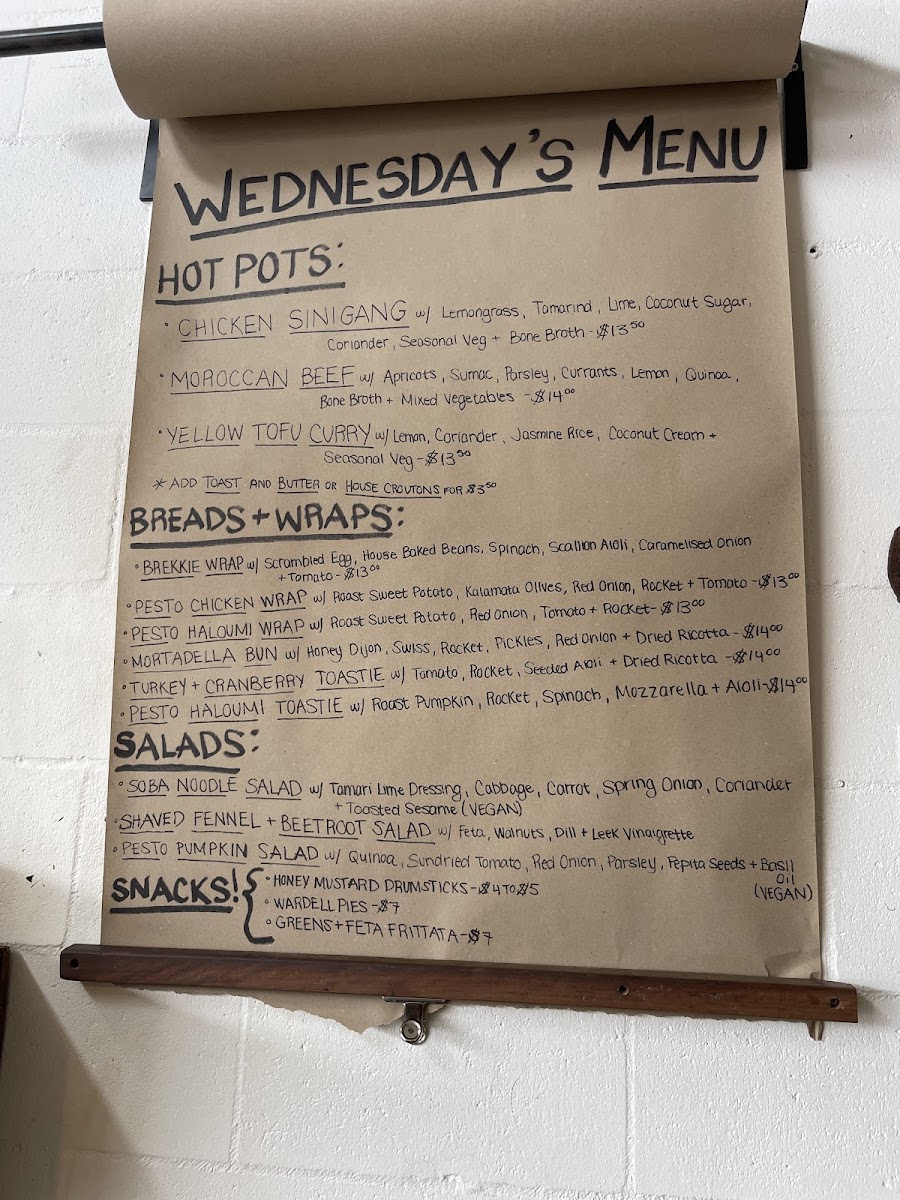 WEDNESDAY'S MENU
HOT POTS:
• CHICKEN SINIGANG w/ Lemongrass, Tamarind, Lime, Coconut Sugar,
Coriander, Seasonal Veg + Bone Broth - $13.50
• MOROCCAN BEEF w/ Apricots, Sumac, Parsley, Currants, Lemon, Quinoa,
Bone Broth + Mixed Vegetables - $14.00
• YELLOW TOFU CURRY w/ Lemon, Coriander, Jasmine Rice, Coconut Cream +
Seasonal Veg - $13.50
* ADD TOAST AND BUTTER OR HOUSE CROUTONS FOR $3.50
BREADS + WRAPS:
• BREKKIE WRAP w/ Scrambled Egg, House Baked Beans, Spinach, Scallion Aioli, Caramelised Onion
+ Tomato - $13.00
• PESTO CHICKEN WRAP w/ Roast Sweet Potato, Kalamata Olives, Red Onion, Rocket + Tomato - $13.00
• PESTO HALOUMI WRAP w/ Roast Sweet Potato, Red Onion, Tomato + Rocket - $13.00
• MORTADELLA BUN w/ Honey Dijon, Swiss, Rocket, Pickles, Red Onion + Dried Ricotta - $14.00
• TURKEY + CRANBERRY TOASTIE w/ Tomato, Rocket, Seeded Aioli + Dried Ricotta - $14.00
• PESTO HALOUMI TOASTIE w/ Roast Pumpkin, Rocket, Spinach, Mozzarella + Aioli - $14.00
SALADS:
• SOBA NOODLE SALAD w/ Tamari Lime Dressing, Cabbage, Carrot, Spring Onion, Coriander
+ Toasted Sesame (VEGAN)
• SHAVED FENNEL + BEETROOT SALAD w/ Feta, Walnuts, Dill + Leek Vinaigrette
• PESTO PUMPKIN SALAD w/ Quinoa, Sundried Tomato, Red Onion, Parsley, Pepita Seeds + Basil
Oil
(VEGAN)
SNACKS! { • HONEY MUSTARD DRUMSTICKS - $4 TO $5
• WARDELL PIES - $7
• GREENS + FETA FRITTATA - $7